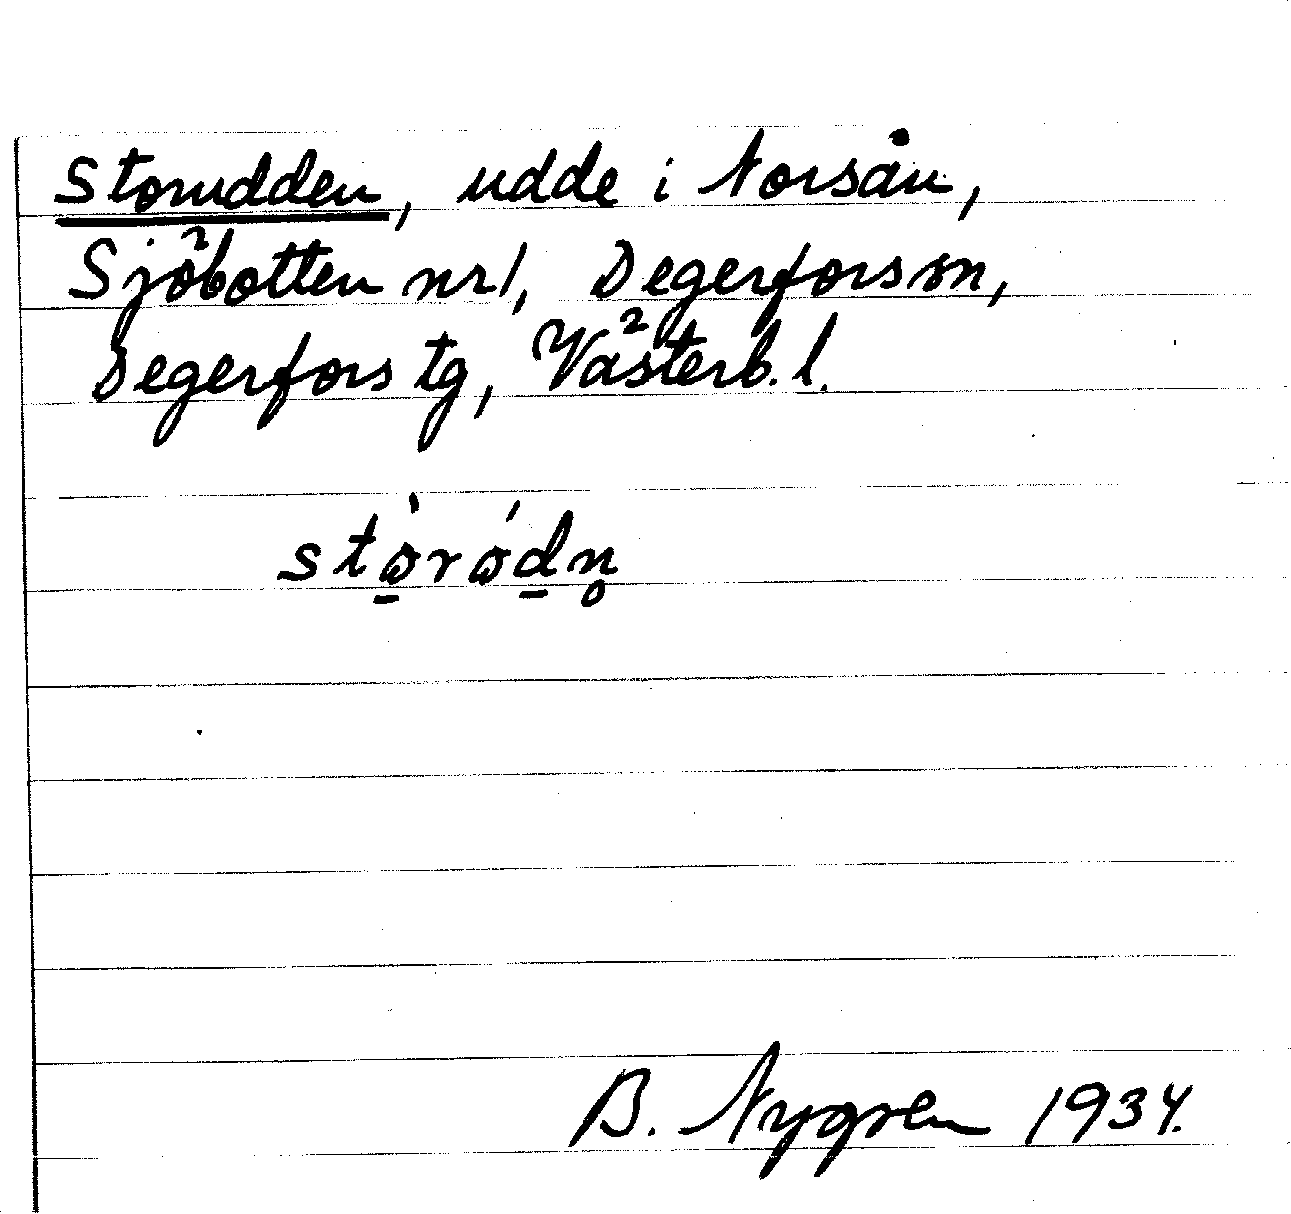 Storudden, udde i Norsån,
Sjöbotten nr 1, Degerfors sn,
Degerfors tg, Västerb. l.
stòròdn̥
B. Nygren 1934.